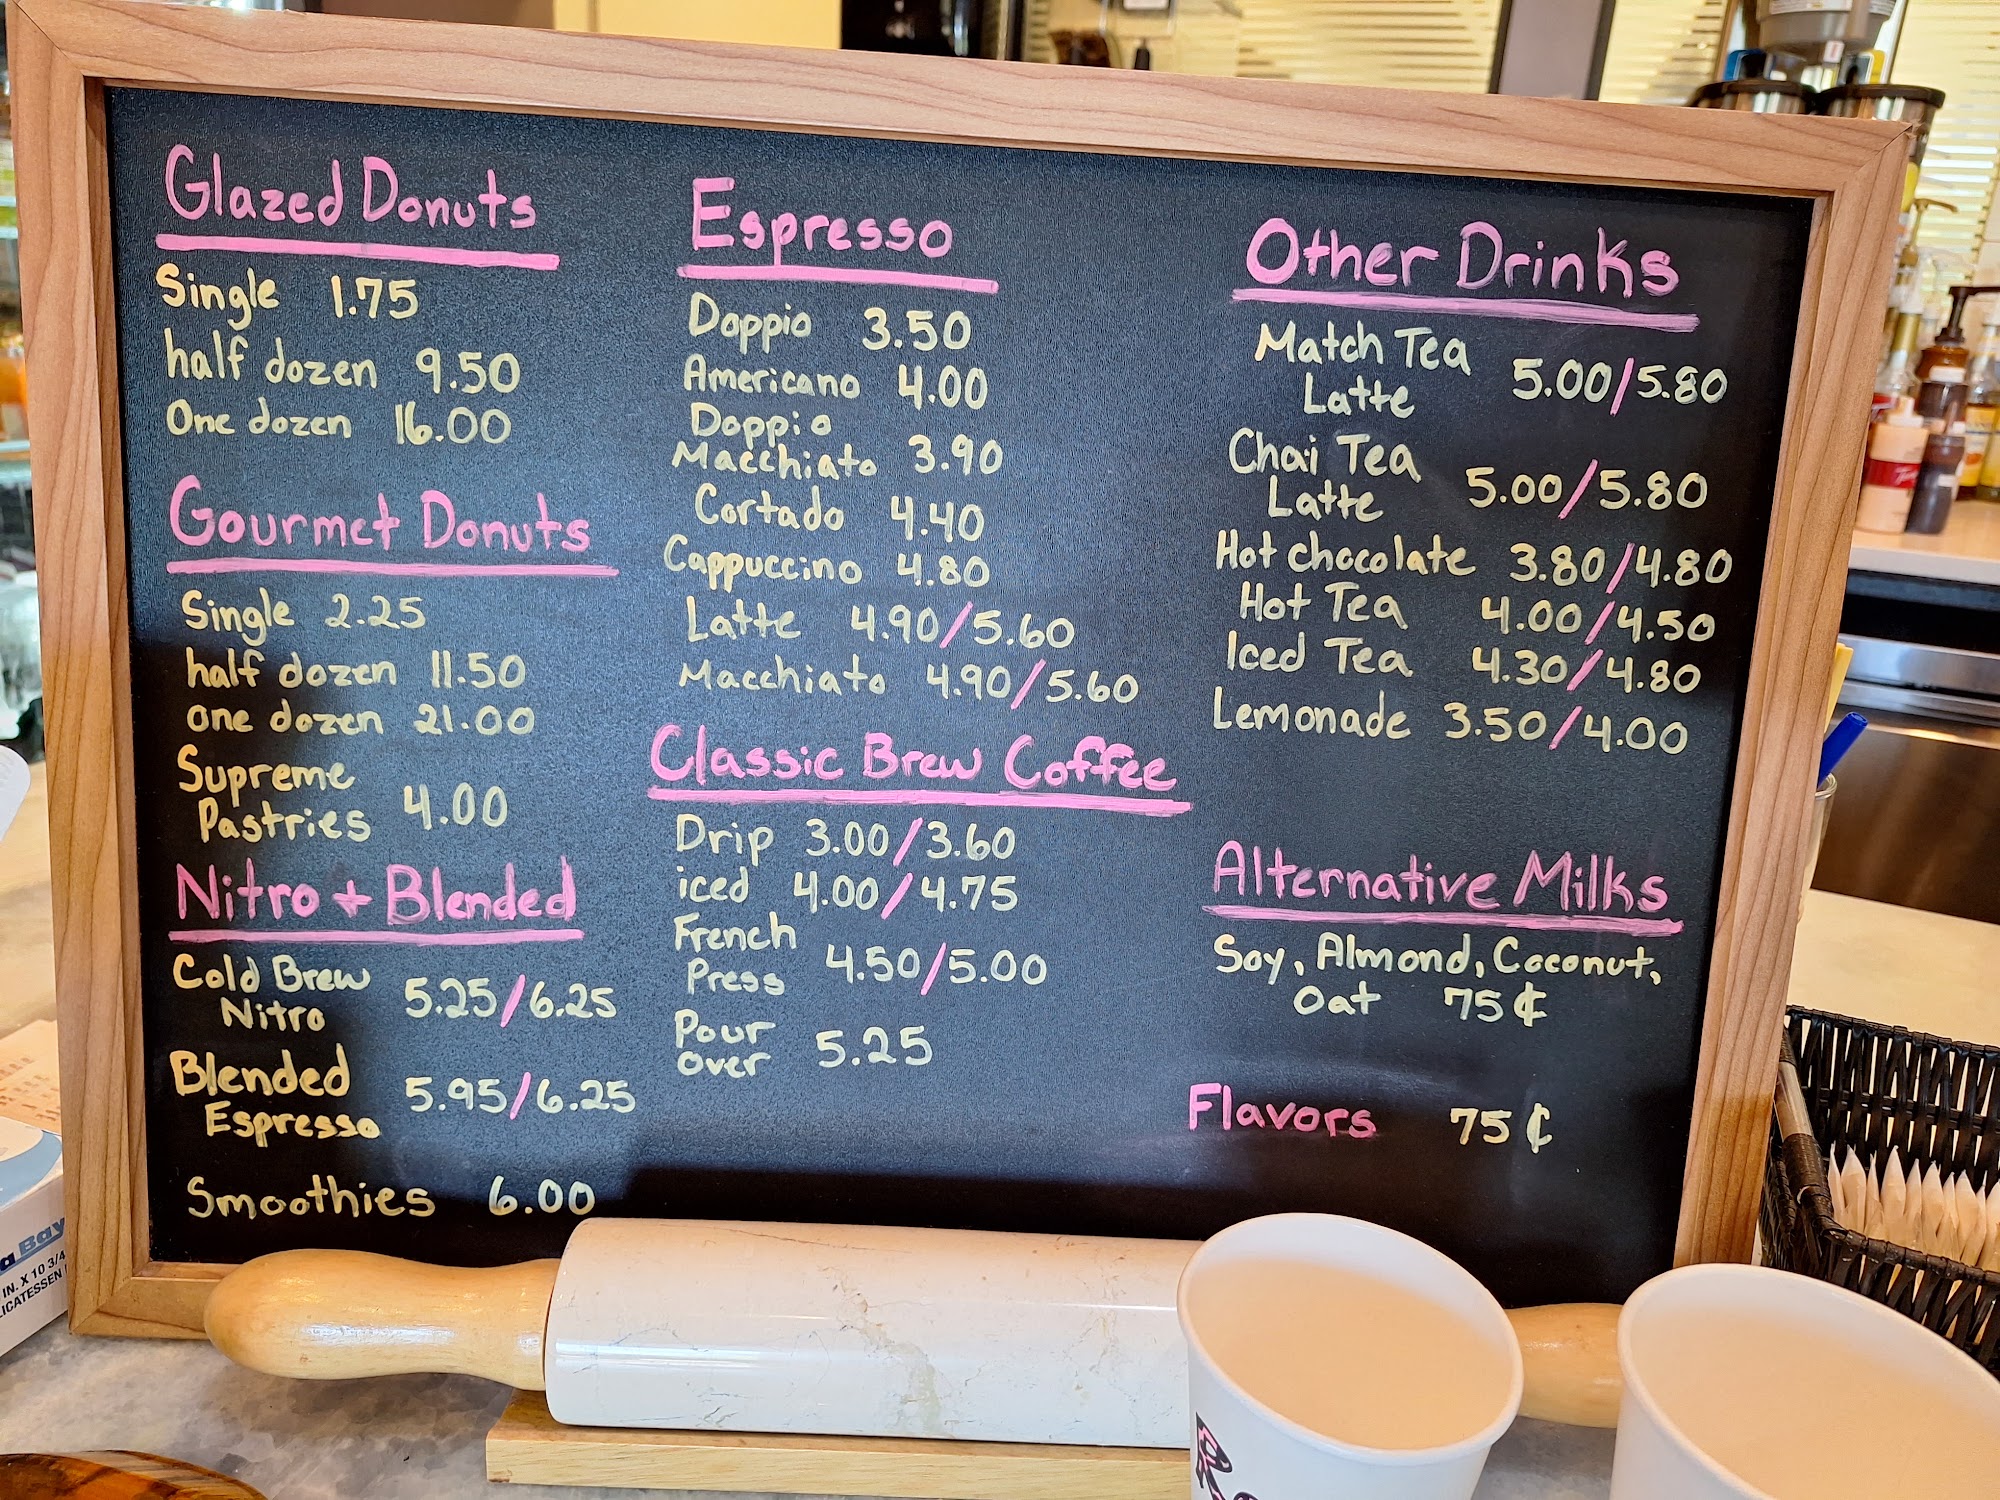 Glazed Donuts
Single 1.75
half dozen 9.50
One dozen 16.00
Gourmet Donuts
Single 2.25
half dozen 11.50
one dozen 21.00
Supreme
Pastries 4.00
Nitro + Blended
Cold Brew
Nitro 5.25/6.25
Blended
Espresso 5.95/6.25
Smoothies 6.00
Espresso
Doppio 3.50
Americano 4.00
Doppio
Macchiato 3.90
Cortado 4.40
Cappuccino 4.80
Latte 4.90/5.60
Macchiato 4.90/5.60
Classic Brew Coffee
Drip 3.00/3.60
iced 4.00/4.75
French
Press 4.50/5.00
Pour
over 5.25
Other Drinks
Match Tea
Latte 5.00/5.80
Chai Tea
Latte 5.00/5.80
Hot chocolate 3.80/4.80
Hot Tea 4.00/4.50
Iced Tea 4.30/4.80
Lemonade 3.50/4.00
Alternative Milks
Soy, Almond, Coconut,
Oat 75¢
Flavors 75¢
Bay
IN. X 10 3/4